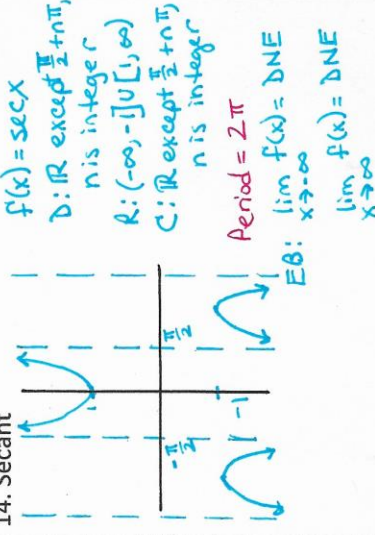 14. Secant
π/2
-π/2
1
-1
f(x) = secx
D: ℝ except π/2 + nπ,
n is integer
R: (-∞, -1] ∪ [1, ∞)
C: ℝ except π/2 + nπ,
n is integer
Period = 2π
EB: lim f(x) = DNE
x→-∞
lim f(x) = DNE
x→∞